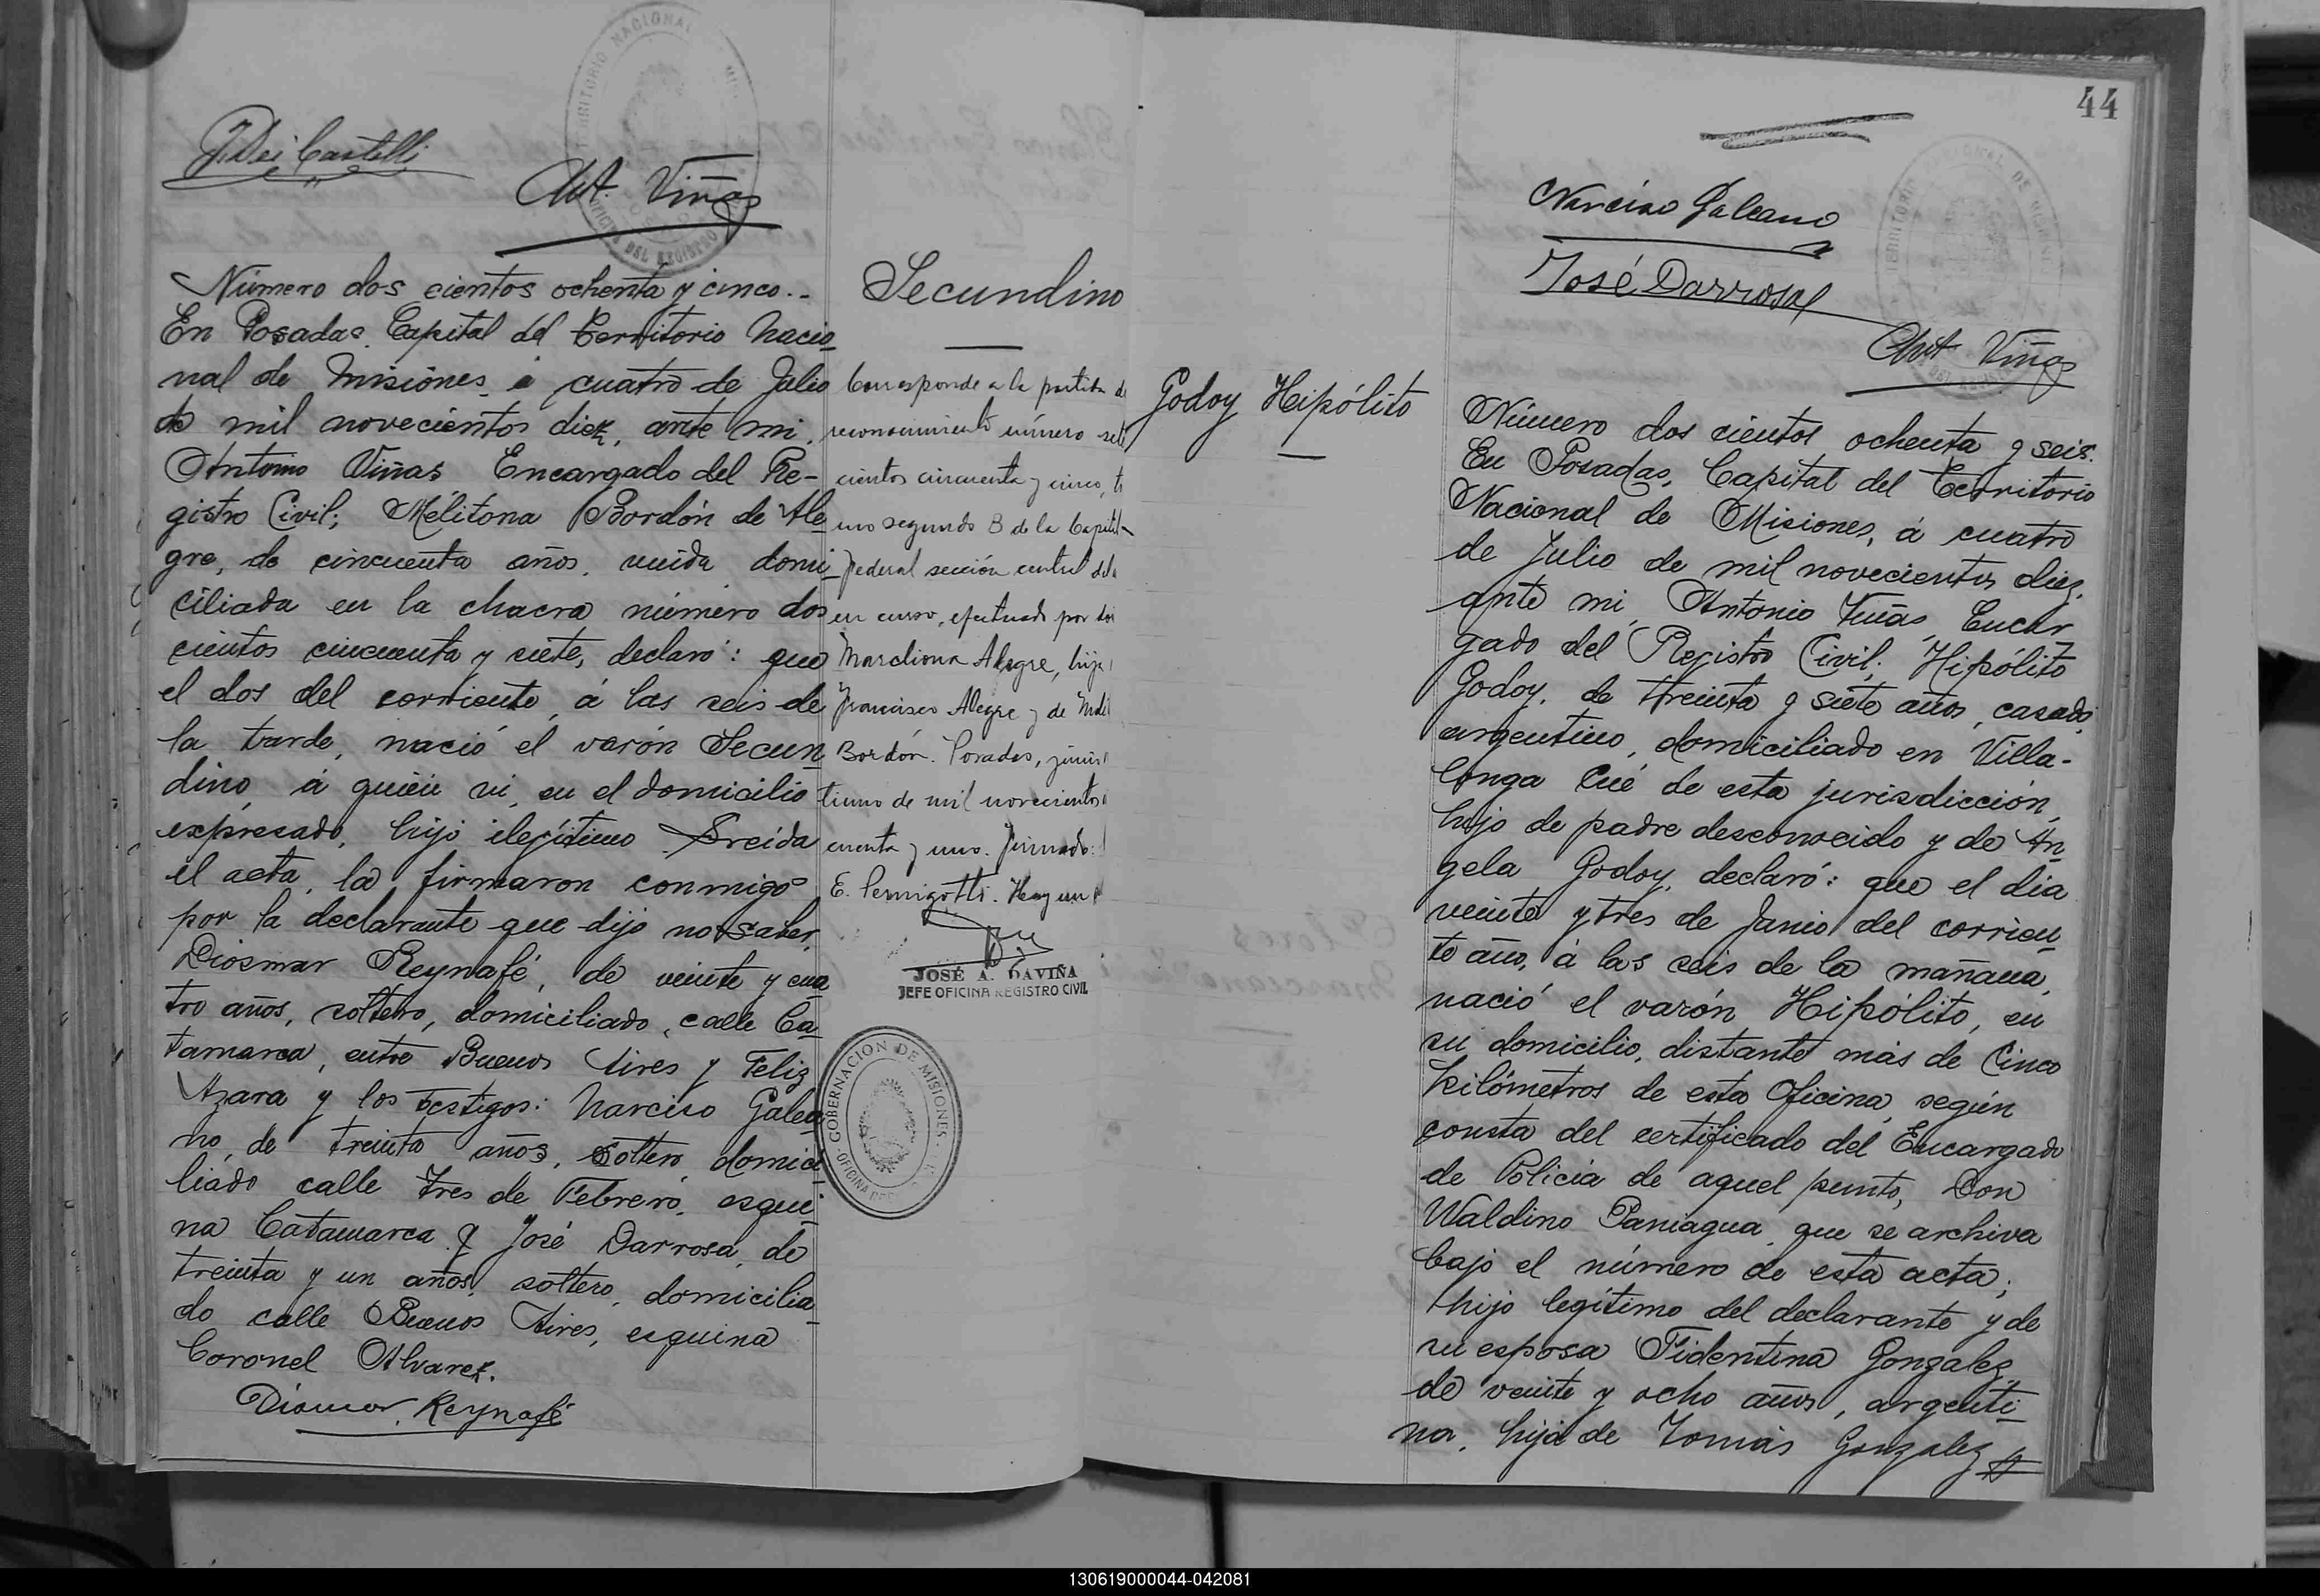 J. Dei Castelli
Ant. Viñas
TERRITORIO NACIONAL
OFICINA DEL REGISTRO
Número dos cientos ochenta y cinco.-
En Posadas, Capital del Territorio Nacio
nal de Misiones, á cuatro de Julio
de mil novecientos diez, ante mi,
Antonio Viñas Encargado del Re-
gistro Civil; Melitona Bordón de Ale
gre, de cincuenta años, viuda, domi-
ciliada en la chacra número dos
cientos cincuenta y siete, declaró: que
el dos del corriente, á las seis de
la tarde, nació el varón Secun
dino, á quien vi, en el domicilio
expresado, hijo ilegítimo. Leida
el acta, la firmaron conmigo
por la declarante que dijo no saber,
Diosmar Reynafé, de veinte y cua
tro años, soltero, domiciliado, calle Ca
tamarca, entre Buenos Aires y Feliz
Azara y los testigos: Narciso Galea
no, de treinta años, soltero, domici
liado calle Tres de Febrero, esqui
na Catamarca y José Darrosa, de
treinta y un años, soltero, domicilia
do calle Buenos Aires, esquina
Coronel Alvarez.
Diosmar Reynafé
Secundino
Corresponde a la partida de
reconocimiento número sete
cientos cincuenta y cinco, to
mo segundo B de la Capital
Federal sección central del
en curso, efectuado por
Marcelina Alegre, hija
Francisco Alegre y de
Bordón. Posadas, junio
de mil novecientos
cuenta y uno. Firmado:
E. Pernigotti. Hay un
JOSÉ A. DAVIÑA
JEFE OFICINA REGISTRO CIVIL
GOBERNACION DE MISIONES
OFICINA
44
Narciso Galeano
José Darrosa
Ant. Viñas
Godoy Hipólito
Número dos cientos ochenta y seis.
En Posadas, Capital del Territorio
Nacional de Misiones, á cuatro
de Julio de mil novecientos diez,
ante mi, Antonio Viñas, Encar
gado del Registro Civil; Hipólito
Godoy, de treinta y siete años, casado,
argentino, domiciliado en Villa-
longa Cué de esta jurisdicción,
hijo de padre desconocido y de An
gela Godoy, declaró: que el dia
veinte y tres de Junio del corrien
te año, á las seis de la mañana,
nació el varón Hipólito, en
su domicilio, distante más de Cinco
kilómetros de esta Oficina, según
consta del certificado del Encargado
de Policia de aquel punto, Don
Waldino Paniagua, que se archiva
bajo el número de esta acta;
hijo legítimo del declarante y de
su esposa Fidentina Gonzalez,
de veinte y ocho años, argenti
na, hija de Tomás Gonzalez
130619000044-042081